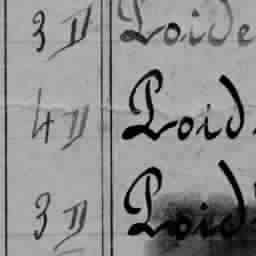 3 II Poide
4 II Poid.
3 II Poid